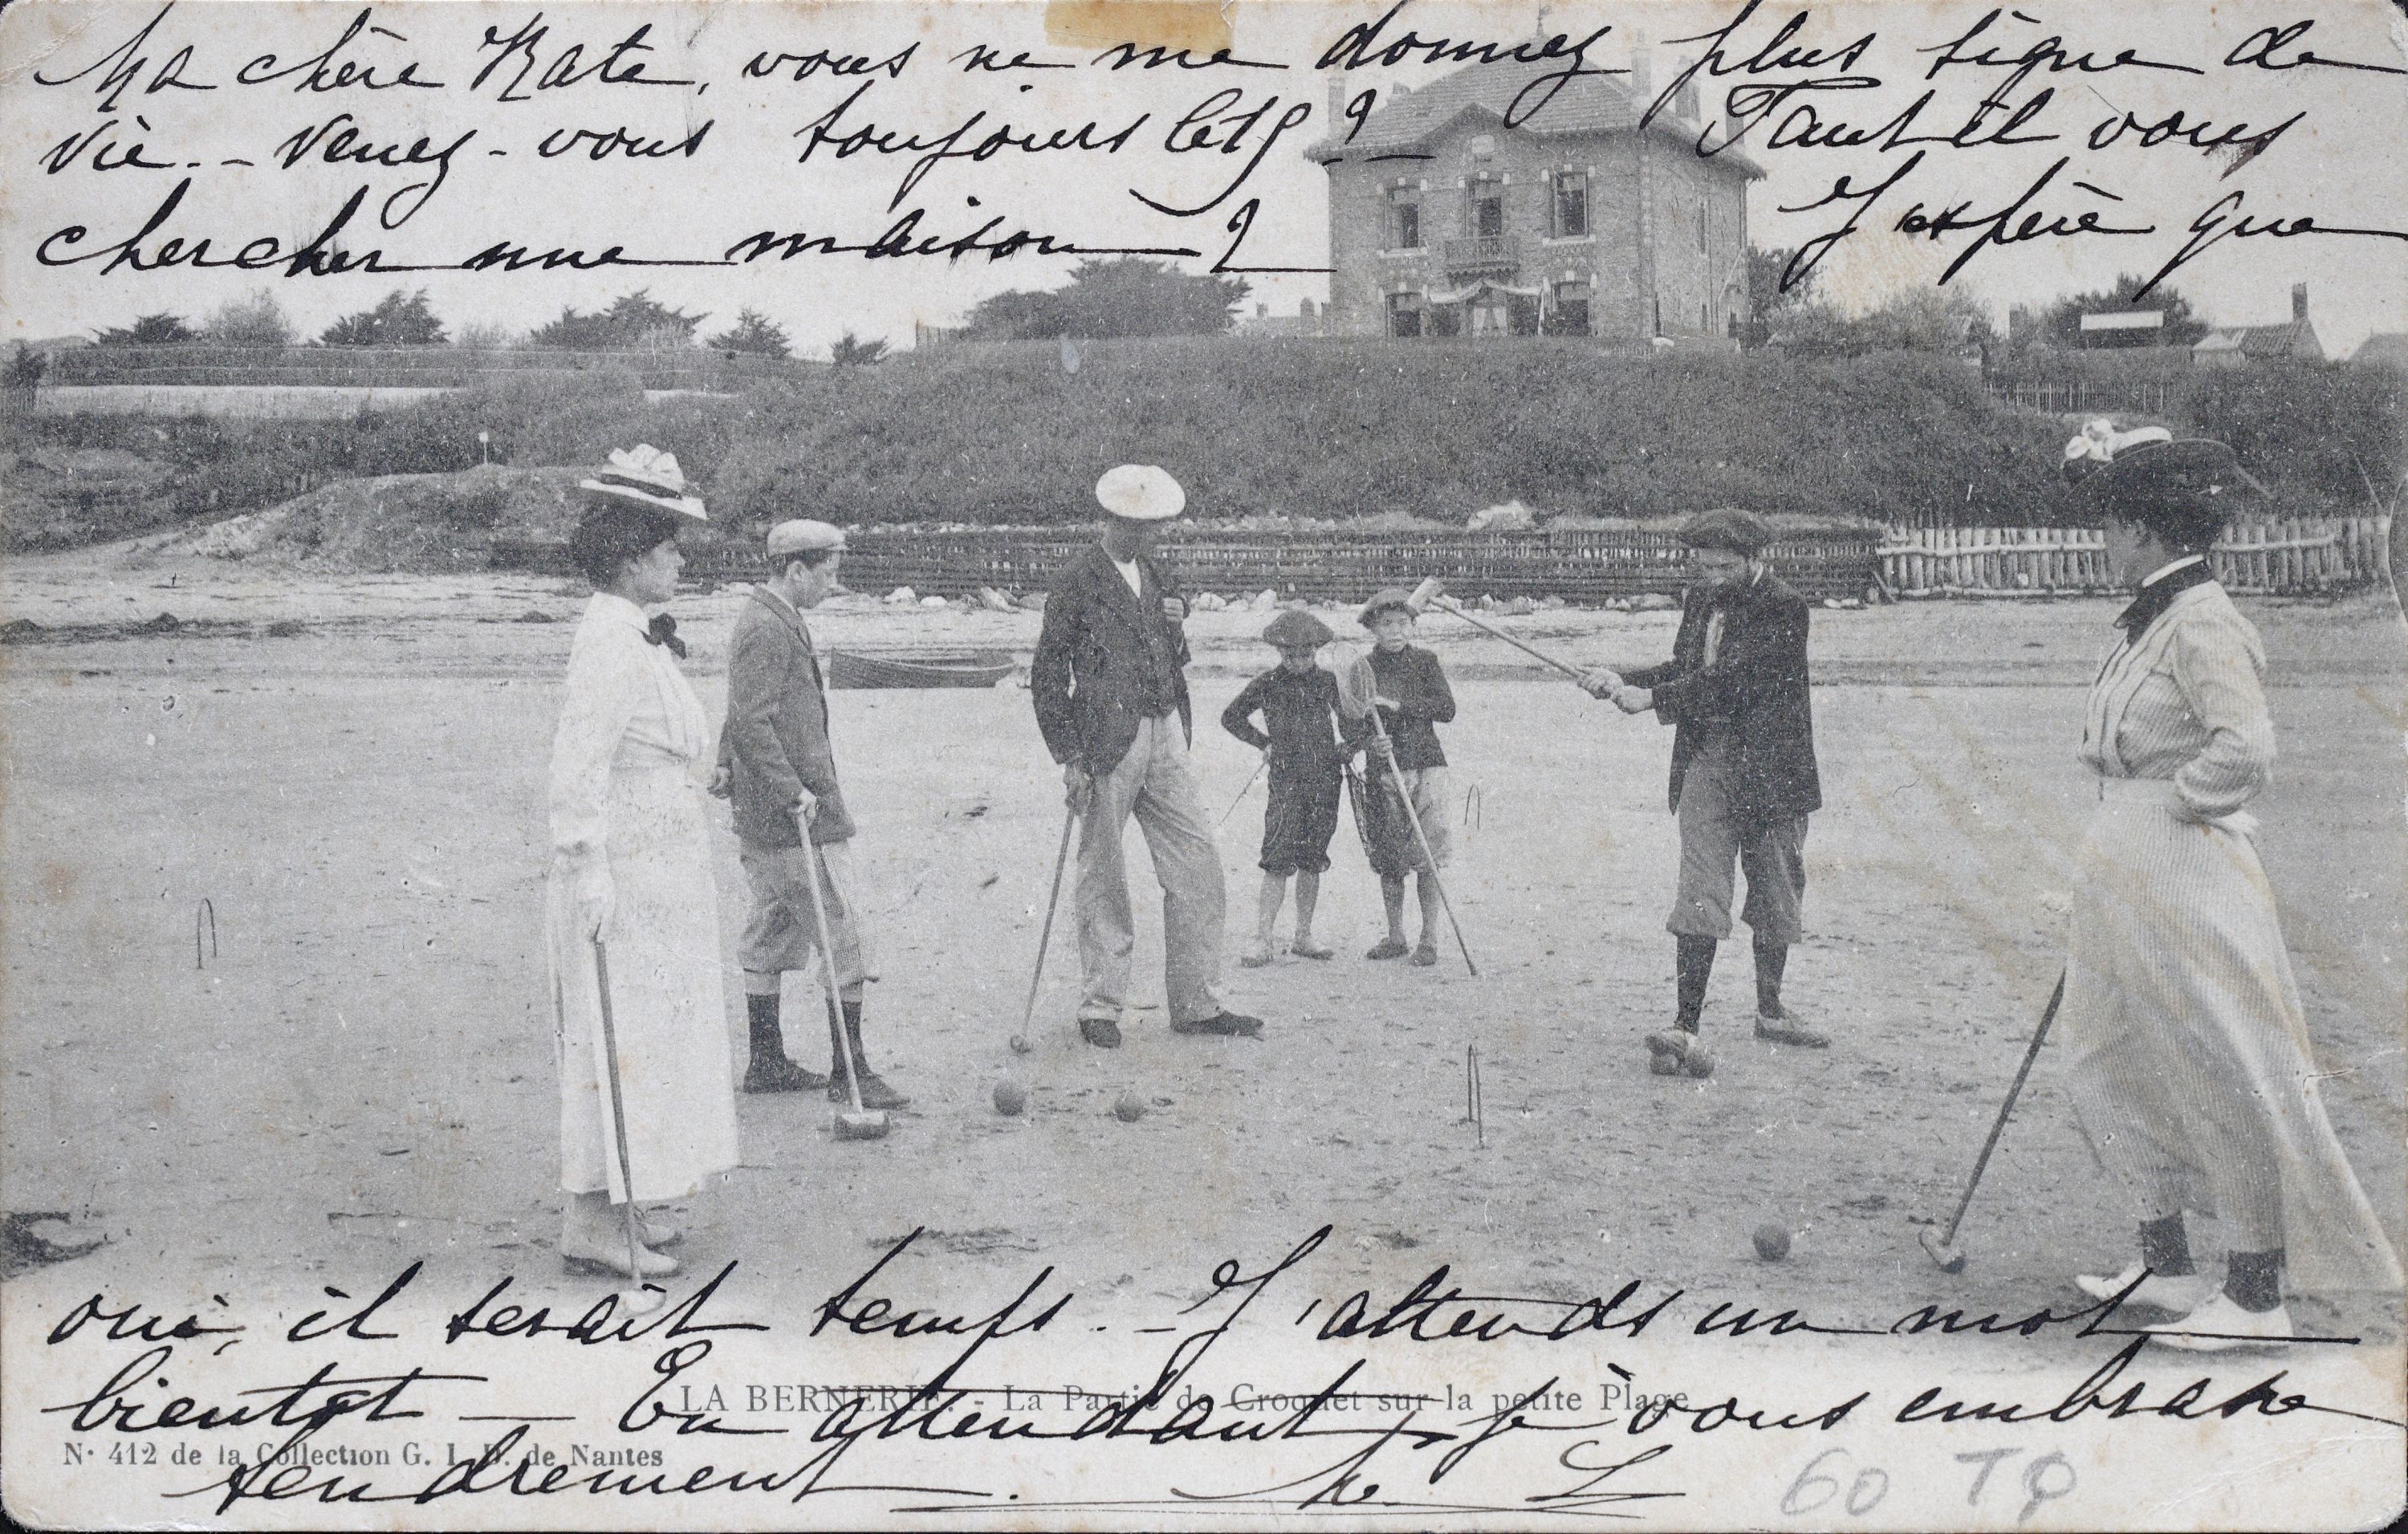 Ma chère Kate, vous ne me donnez plus signe de
vie. - Venez-vous toujours cet ? Faut il vous
chercher une maison ? J'espère que
oui, il serait temps. - J'attends un mot
bientot — En attendant, je vous embrasse
LA BERNERIE. - La Partie de Croquet sur la petite Plage
N· 412 de la Collection G. I. D. de Nantes
tendrement. L
60 T